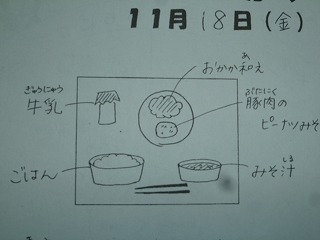 11月18日(金)
おかか和え
あ
ぎゅうにゅう
牛乳
ぶたにく
豚肉の
ピーナツみそ
ごはん
しる
みそ汁